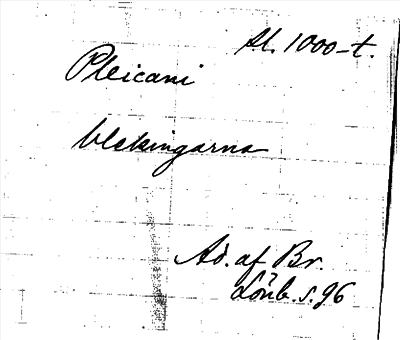 sl. 1000-t.
Pleicani
Blekingarna
Ad. af Br.
Lönb. s. 96